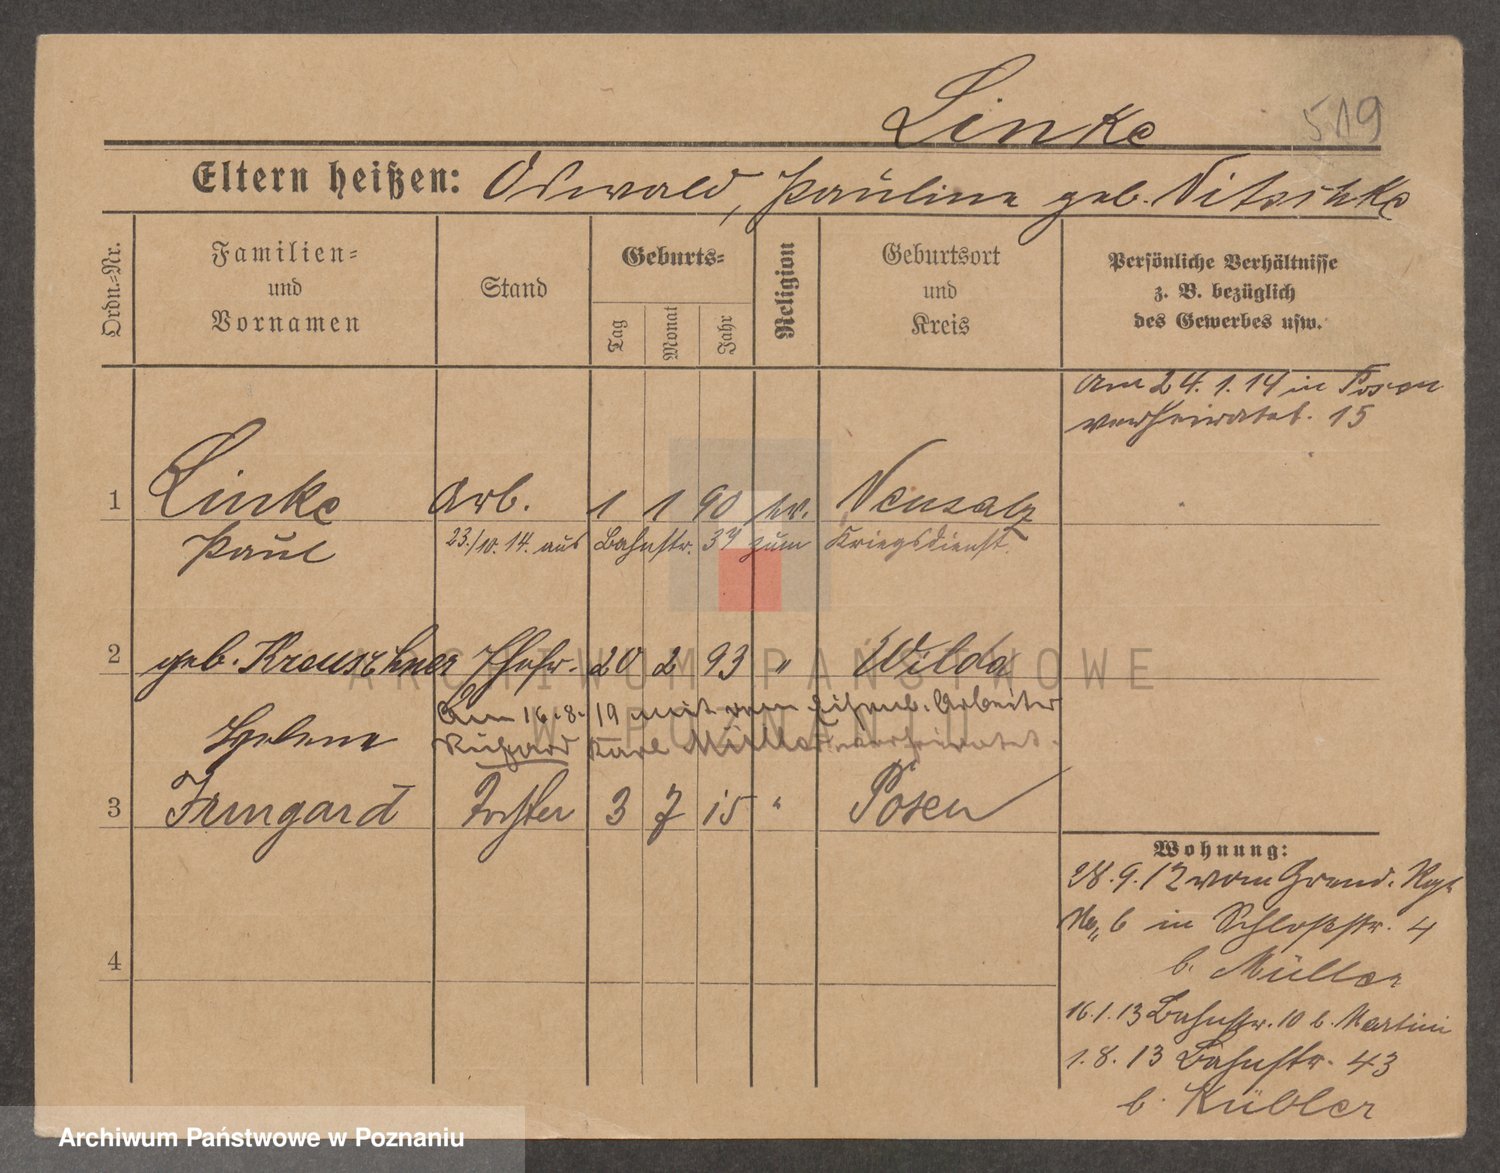 Linke 519
Eltern heißen: Oswald, Pauline geb. Nitschke
Ordn.-Nr.
Familien-
und
Vornamen
Stand
Geburts-
Tag
Monat
Jahr
Religion
Geburtsort
und
Kreis
Persönliche Verhältnisse
z. B. bezüglich
des Gewerbes usw.
Am 24.1.14 in Posen
verheiratet. 15
1 Linke Arb. 1 1 90 ev. Neusalz
Paul 23./10.14. aus Bahnstr. 37 zum Kriegsdienst.
2 geb. Kreuschner Ehefr. 20 2 93 " Wilda
Am 16.8.19 mit dem Eisenb. Arbeiter
Helene Richard Karl Müller verheiratet.
3 Irmgard Tochter 3 7 15 " Posen
4
Wohnung:
28.9.12 vom Grend. Rgt
No 6 in Schloßstr. 4
b. Müller
16.1.13 Bahnstr. 10 b. Martini
1.8.13 Bahnstr. 43
b. Kübler
ARCHIWUM PAŃSTWOWE
W POZNANIU
Archiwum Państwowe w Poznaniu